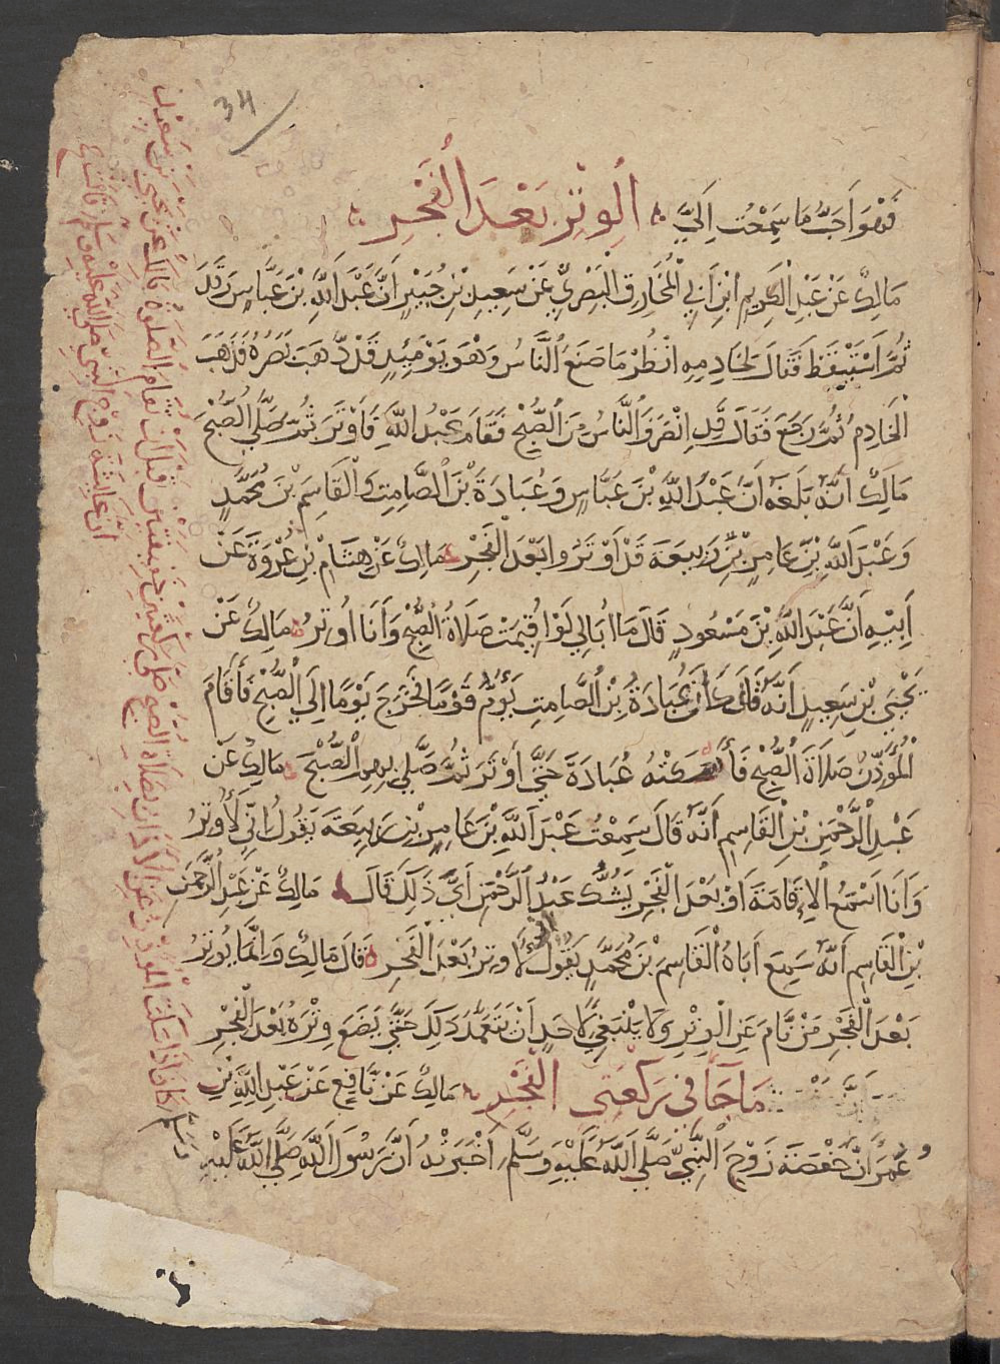 34
فَهُوَ اَحَبُّ مَا سَمِعْتُ اِلَيَّ ؞ اَلْوِتْرِ بَعْدَ الْفَجْرِ ؞
مَالِكٌ عَنْ عَبْدِ الْكَرِيمِ ابْنِ اَبِي الْمُخَارِقِ الْبَصْرِيِّ عَنْ سَعِيدِ بْنِ جُبَيْرٍ اَنَّ عَبْدَ اللَّهِ بْنَ عَبَّاسٍ رَقَدَ
ثُمَّ اسْتَيْقَظَ فَقَالَ لِخَادِمِهِ انْظُرْ مَا صَنَعَ النَّاسُ وَهْوَ يَوْمَئِذٍ قَدْ ذَّهَبَ بَصَرُهُ فَذَهَبَ
الْخَادِمُ ثُمَّ رَجَعَ فَقَالَ قَدِ انْصَرَفَ النَّاسُ مِنَ الصُّبْحِ فَقَامَ عَبْدُ اللَّهِ فَاَوْتَرَ ثُمَّ صَلَّى الصُّبْحَ
مَالِكٌ اَنَّهُ بَلَغَهُ اَنَّ عَبْدَ اللَّهِ بْنَ عَبَّاسٍ وَعُبَادَةَ بْنَ الصَّامِتِ وَالْقَاسِمَ بْنَ مُحَمَّدٍ
وَعَبْدَ اللَّهِ بْنَ عَامِرِ بْنِ رَبِيعَةَ قَدْ اَوْتَرُوا بَعْدَ الْفَجْرِ مَالِكٌ عَنْ هِشَامِ بْنِ عُرْوَةَ عَنْ
اَبِيهِ اَنَّ عَبْدَ اللَّهِ بْنَ مَسْعُودٍ قَالَ مَا اُبَالِي لَوْ اُقِيمَتْ صَلَاةُ الصُّبْحِ وَاَنَا اُوتِرُ مَالِكٌ عَنْ
يَحْيَى بْنِ سَعِيدٍ اَنَّهُ قَالَ كَانَ عُبَادَةُ بْنُ الصَّامِتِ يَؤُمُّ قَوْمًا فَخَرَجَ يَوْمًا اِلَى الصُّبْحِ فَاَقَامَ
الْمُؤَذِّنُ صَلَاةَ الصُّبْحِ فَاَسْكَتَهُ عُبَادَةَ حَتَّى اَوْتَرَ ثُمَّ صَلَّى بِهِمِ الصُّبْحَ مَالِكٌ عَنْ
عَبْدِ الرَّحْمَنِ بْنِ الْقَاسِمِ اَنَّهُ قَالَ سَمِعْتُ عَبْدَ اللَّهِ بْنَ عَامِرِ بْنِ رَبِيعَةَ يَقُولُ اِنِّي لَأُوتِرُ
وَاَنَا اَسْمَعُ الْاِقَامَةَ اَوْ بَعْدَ الْفَجْرِ يَشُكُّ عَبْدُ الرَّحْمَنِ اَيَّ ذَلِكَ قَالَ مَالِكٌ عَنْ عَبْدِ الرَّحْمَنِ
بْنِ الْقَاسِمِ اَنَّهُ سَمِعَ اَبَاهُ الْقَاسِمَ بْنَ مُحَمَّدٍ يَقُولُ اِنِّي لَاُوتِرُ بَعْدَ الْفَجْرِ قَالَ مَالِكٌ وَاِنَّمَا يُوتِرُ
بَعْدَ الْفَجْرِ مَنْ نَّامَ عَنِ الْوِتْرِ وَلَا يَنْبَغِي لِاَحَدٍ اَنْ يَتَعَمَّدَ ذَلِكَ حَتَّى يَضَعَ وِتْرَهُ بَعْدَ الْفَجْرِ
مَا جَآ فِي رَكْعَتَي الْفَجْرِ مَالِكٌ عَنْ نَّافِعٍ عَنْ عَبْدِ اللَّهِ بْنِ
عُمَرَ اَنَّ حَفْصَةَ زَوْجَ النَّبِيِّ صَلَّى اللَّهُ عَلَيْهِ وَسَلَّمَ اَخْبَرَتْهُ اَنَّ رَسُولَ اللَّهِ صَلَّى اللَّهُ عَلَيْهِ
وَسَلَّمَ كَانَ اِذَا سَكَتَ الْمُؤَذِّنُ عَنِ الْاَذَانِ بِصَلَاةِ الصبح صَلَّى رَكْعَتَيْنِ خفيفتين قبل ان تقام الصَّلَوةُ مَالِكٌ عَنْ يَحْيَى بْنِ سَعِيدٍ
اَنَّ عَائِشَةَ زَوْجَ النَّبِيِّ صَلَّى اللَّهُ عَلَيْهِ وَسَلَّمَ قالت